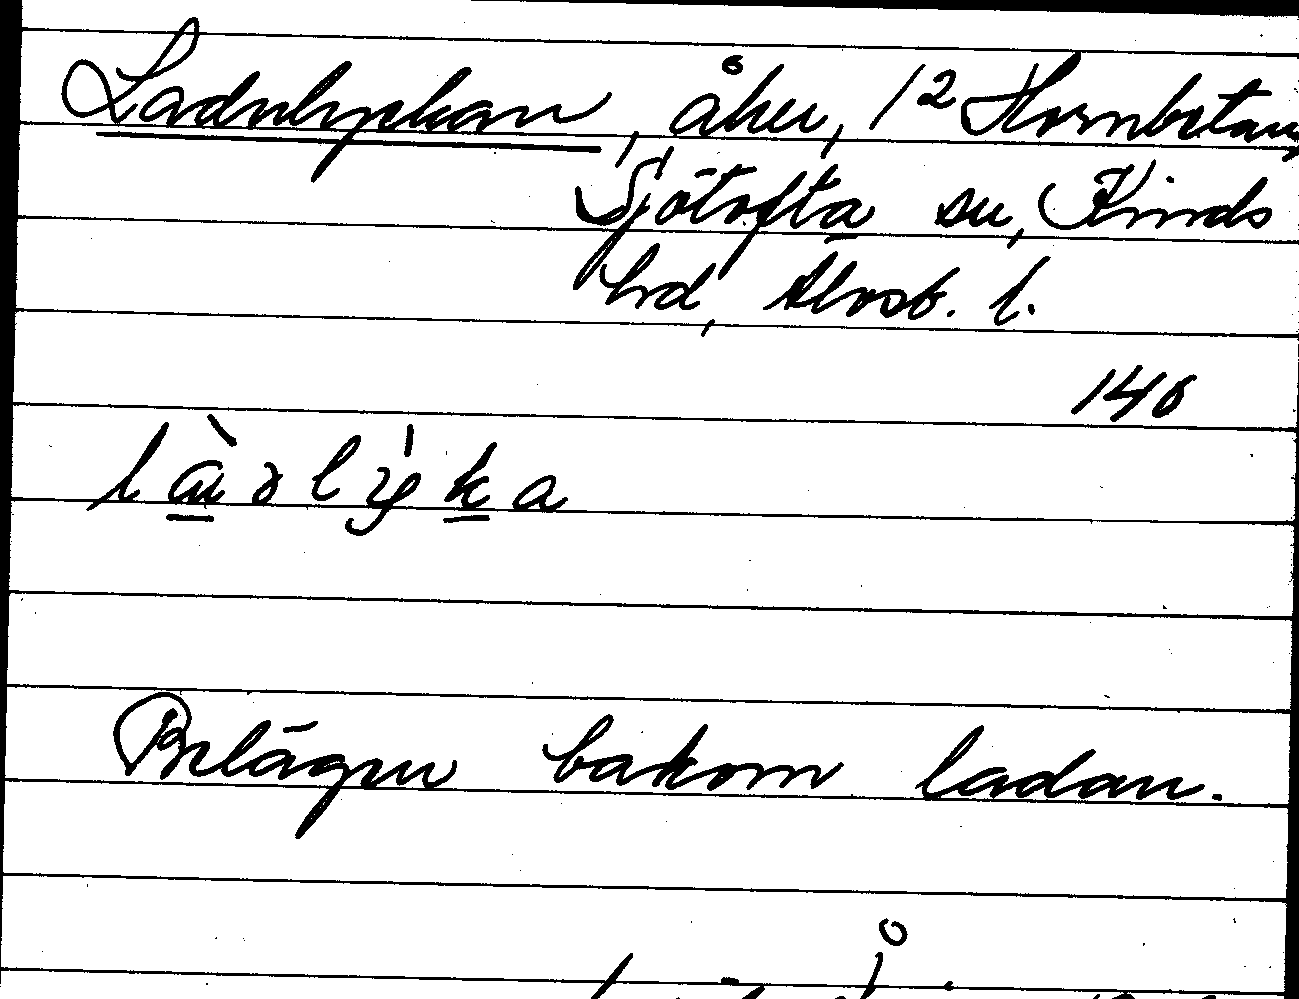 Ladulyckan, åker, 1² Hornbetan,
Sjötofta sn, Kinds
hrd, Älvsb. l.
140
Belägen bakom ladan.